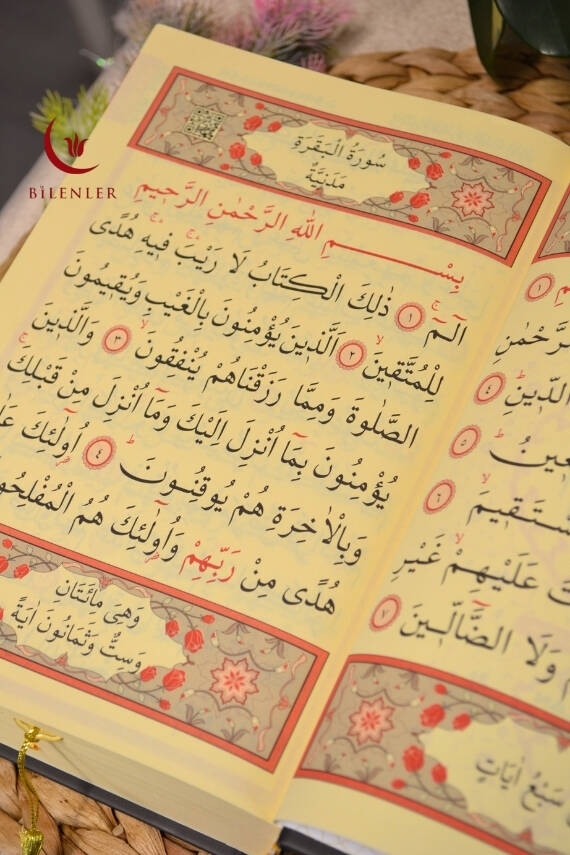 BİLENLER
سُورَةُ الْبَقَرَةِ
مَدَنِيَّةٌ
بِسْمِ اللّٰهِ الرَّحْمٰنِ الرَّحٖيمِ
الٓمٓ ١ ذٰلِكَ الْكِتَابُ لَا رَيْبَ فٖيهِ هُدًى
لِلْمُتَّقٖينَ ٢ اَلَّذٖينَ يُؤْمِنُونَ بِالْغَيْبِ وَيُقٖيمُونَ
الصَّلٰوةَ وَمِمَّا رَزَقْنَاهُمْ يُنْفِقُونَ ٣ وَالَّذٖينَ
يُؤْمِنُونَ بِمَٓا اُنْزِلَ اِلَيْكَ وَمَٓا اُنْزِلَ مِنْ قَبْلِكَ
وَبِالْاٰخِرَةِ هُمْ يُوقِنُونَ ٤ اُو۬لٰٓئِكَ
هُدًى مِنْ رَبِّهِمْ وَاُو۬لٰٓئِكَ هُمُ الْمُفْلِحُونَ
وَهِىَ مِائَتَانِ
وَسِتٌّ وَثَمَانُونَ اٰيَةً
١
٤
٥
٦ سْتَقٖيمَ
عَلَيْهِمْ غَيْرِ
وَلَا الضَّٓالّٖينَ ٧
سَبْعُ اٰيَاتٍ